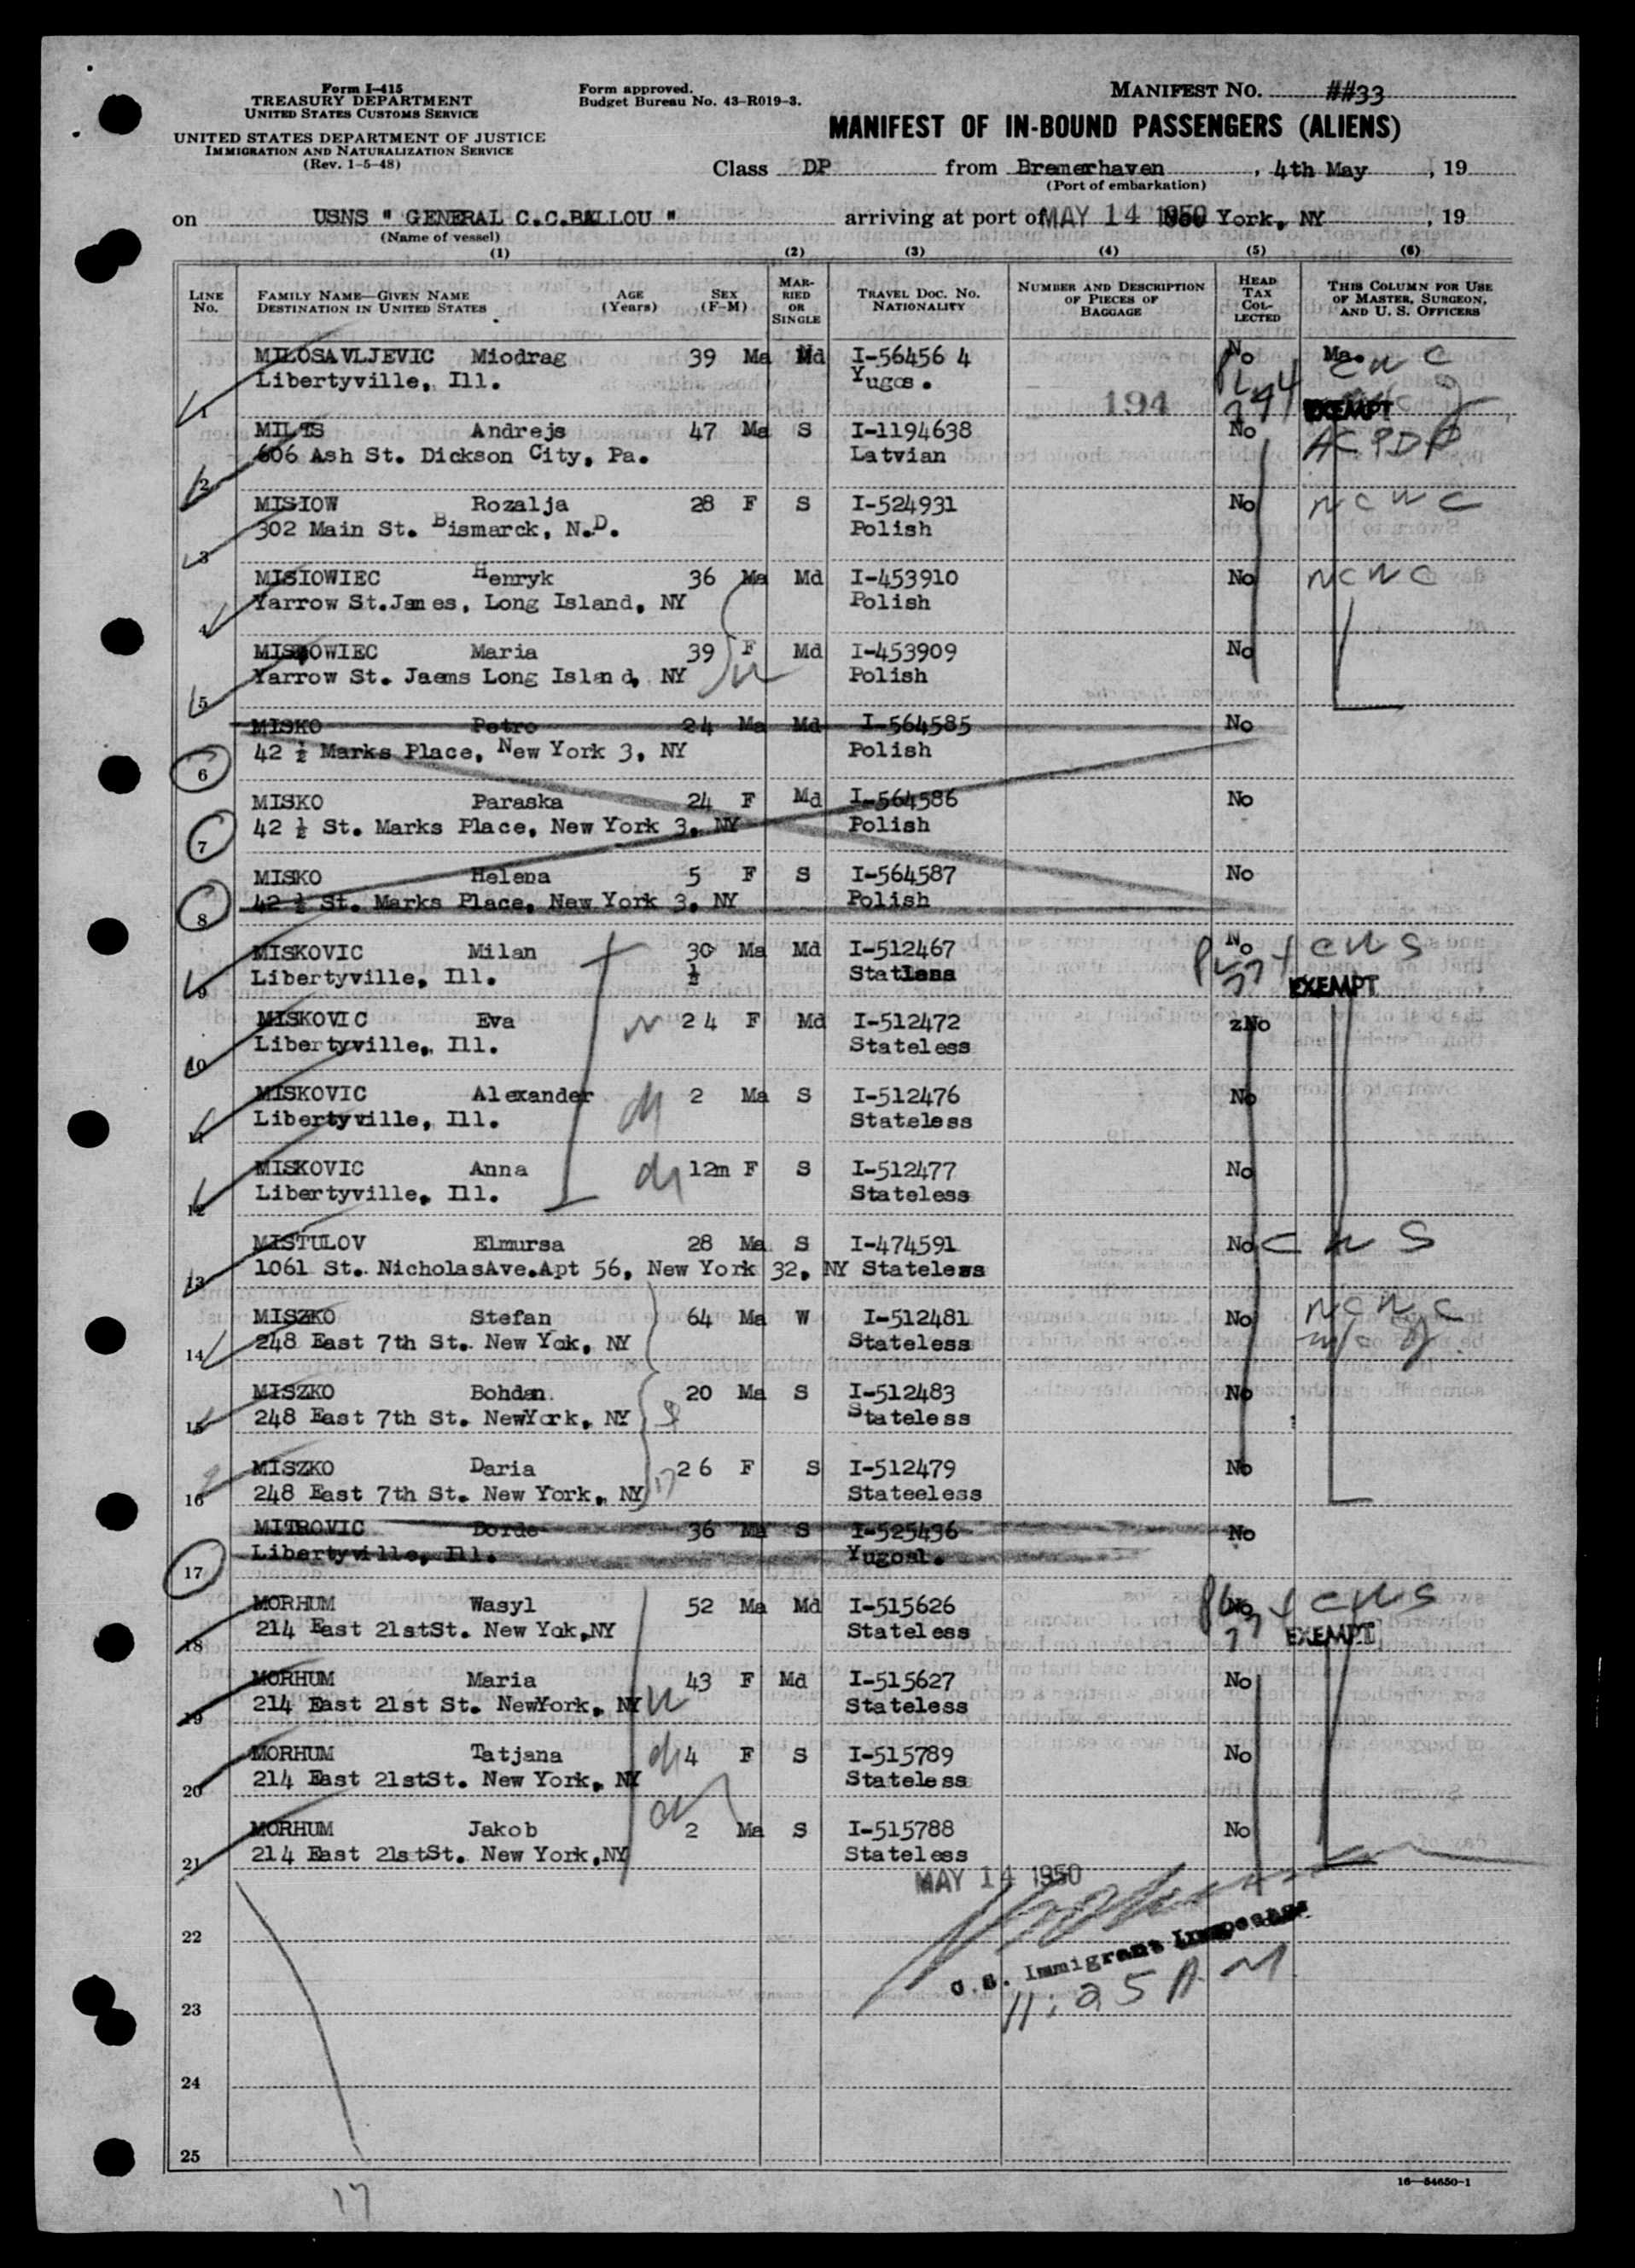 Form I-415
TREASURY DEPARTMENT
UNITED STATES CUSTOMS SERVICE
UNITED STATES DEPARTMENT OF JUSTICE
IMMIGRATION AND NATURALIZATION SERVICE
(Rev. 1-5-48)
Form approved.
Budget Bureau No. 43-R019-3.
MANIFEST NO. ##33
MANIFEST OF IN-BOUND PASSENGERS (ALIENS)
Class DP from Bremerhaven, 4th May, 19
(Port of embarkation)
on USNS " GENERAL C.C.BALLOU " arriving at port of MAY 14 1950 New York, NY, 19
(Name of vessel)
(1) (2) (3) (4) (5) (6)
LINE No. FAMILY NAME—GIVEN NAME DESTINATION IN UNITED STATES AGE (Years) SEX (F-M) MARRIED OR SINGLE TRAVEL DOC. NO. NATIONALITY NUMBER AND DESCRIPTION OF PIECES OF BAGGAGE HEAD TAX COLLECTED THIS COLUMN FOR USE OF MASTER, SURGEON, AND U. S. OFFICERS
MILOSAVLJEVIC Miodrag 39 Ma Md I-56456 4 No Ma. C W C
1 Libertyville, Ill. Yugos. 194 EXEMPT
MILTS Andrejs 47 Ma S I-1194638 No ACPDP
2 606 Ash St. Dickson City, Pa. Latvian
MISIOW Rozalja 28 F S I-524931 No NCWC
3 302 Main St. Bismarck, N.D. Polish
MISIOWIEC Henryk 36 Ma Md I-453910 No NCWC
4 Yarrow St.James, Long Island, NY Polish
MISIOWIEC Maria 39 F Md I-453909 No
5 Yarrow St. Jaems Long Island, NY W Polish
MISKO Petro 24 Ma Md I-564585 No
6 42 ½ Marks Place, New York 3, NY Polish
MISKO Paraska 24 F Md I-564586 No
7 42 ½ St. Marks Place, New York 3, NY Polish
MISKO Helena 5 F S I-564587 No
8 42 ½ St. Marks Place, New York 3, NY Polish
MISKOVIC Milan 30 Ma Md I-512467 No CWS
9 Libertyville, Ill. ½ Statless EXEMPT
MISKOVIC Eva 24 F Md I-512472 zNo
10 Libertyville, Ill. Stateless
MISKOVIC Alexander 2 Ma S I-512476 No
11 Libertyville, Ill. Stateless
MISKOVIC Anna 12m F S I-512477 No
12 Libertyville, Ill. Stateless
MISTULOV Elmursa 28 Ma S I-474591 No C W S
13 1061 St. NicholasAve.Apt 56, New York 32, NY Stateless
MISZKO Stefan 64 Ma W I-512481 No NCWC
14 248 East 7th St. New Yok, NY Stateless
MISZKO Bohdan 20 Ma S I-512483 No
15 248 East 7th St. NewYork, NY Stateless
MISZKO Daria 26 F S I-512479 No
16 248 East 7th St. New York, NY Stateeless
MITROVIC Dorde 36 Ma S I-525436 No
17 Libertyville, Ill. Yugosl.
MORHUM Wasyl 52 Ma Md I-515626 No CWS
18 214 East 21stSt. New Yok,NY Stateless EXEMPT
MORHUM Maria 43 F Md I-515627 No
19 214 East 21st St. NewYork, NY W Stateless
MORHUM Tatjana 4 F S I-515789 No
20 214 East 21stSt. New York, NY Stateless
MORHUM Jakob 2 Ma S I-515788 No
21 214 East 21stSt. New York,NY Stateless
MAY 14 1950
22
U. S. Immigrant Inspector
23 11:25 AM
24
25
16—54650-1
17